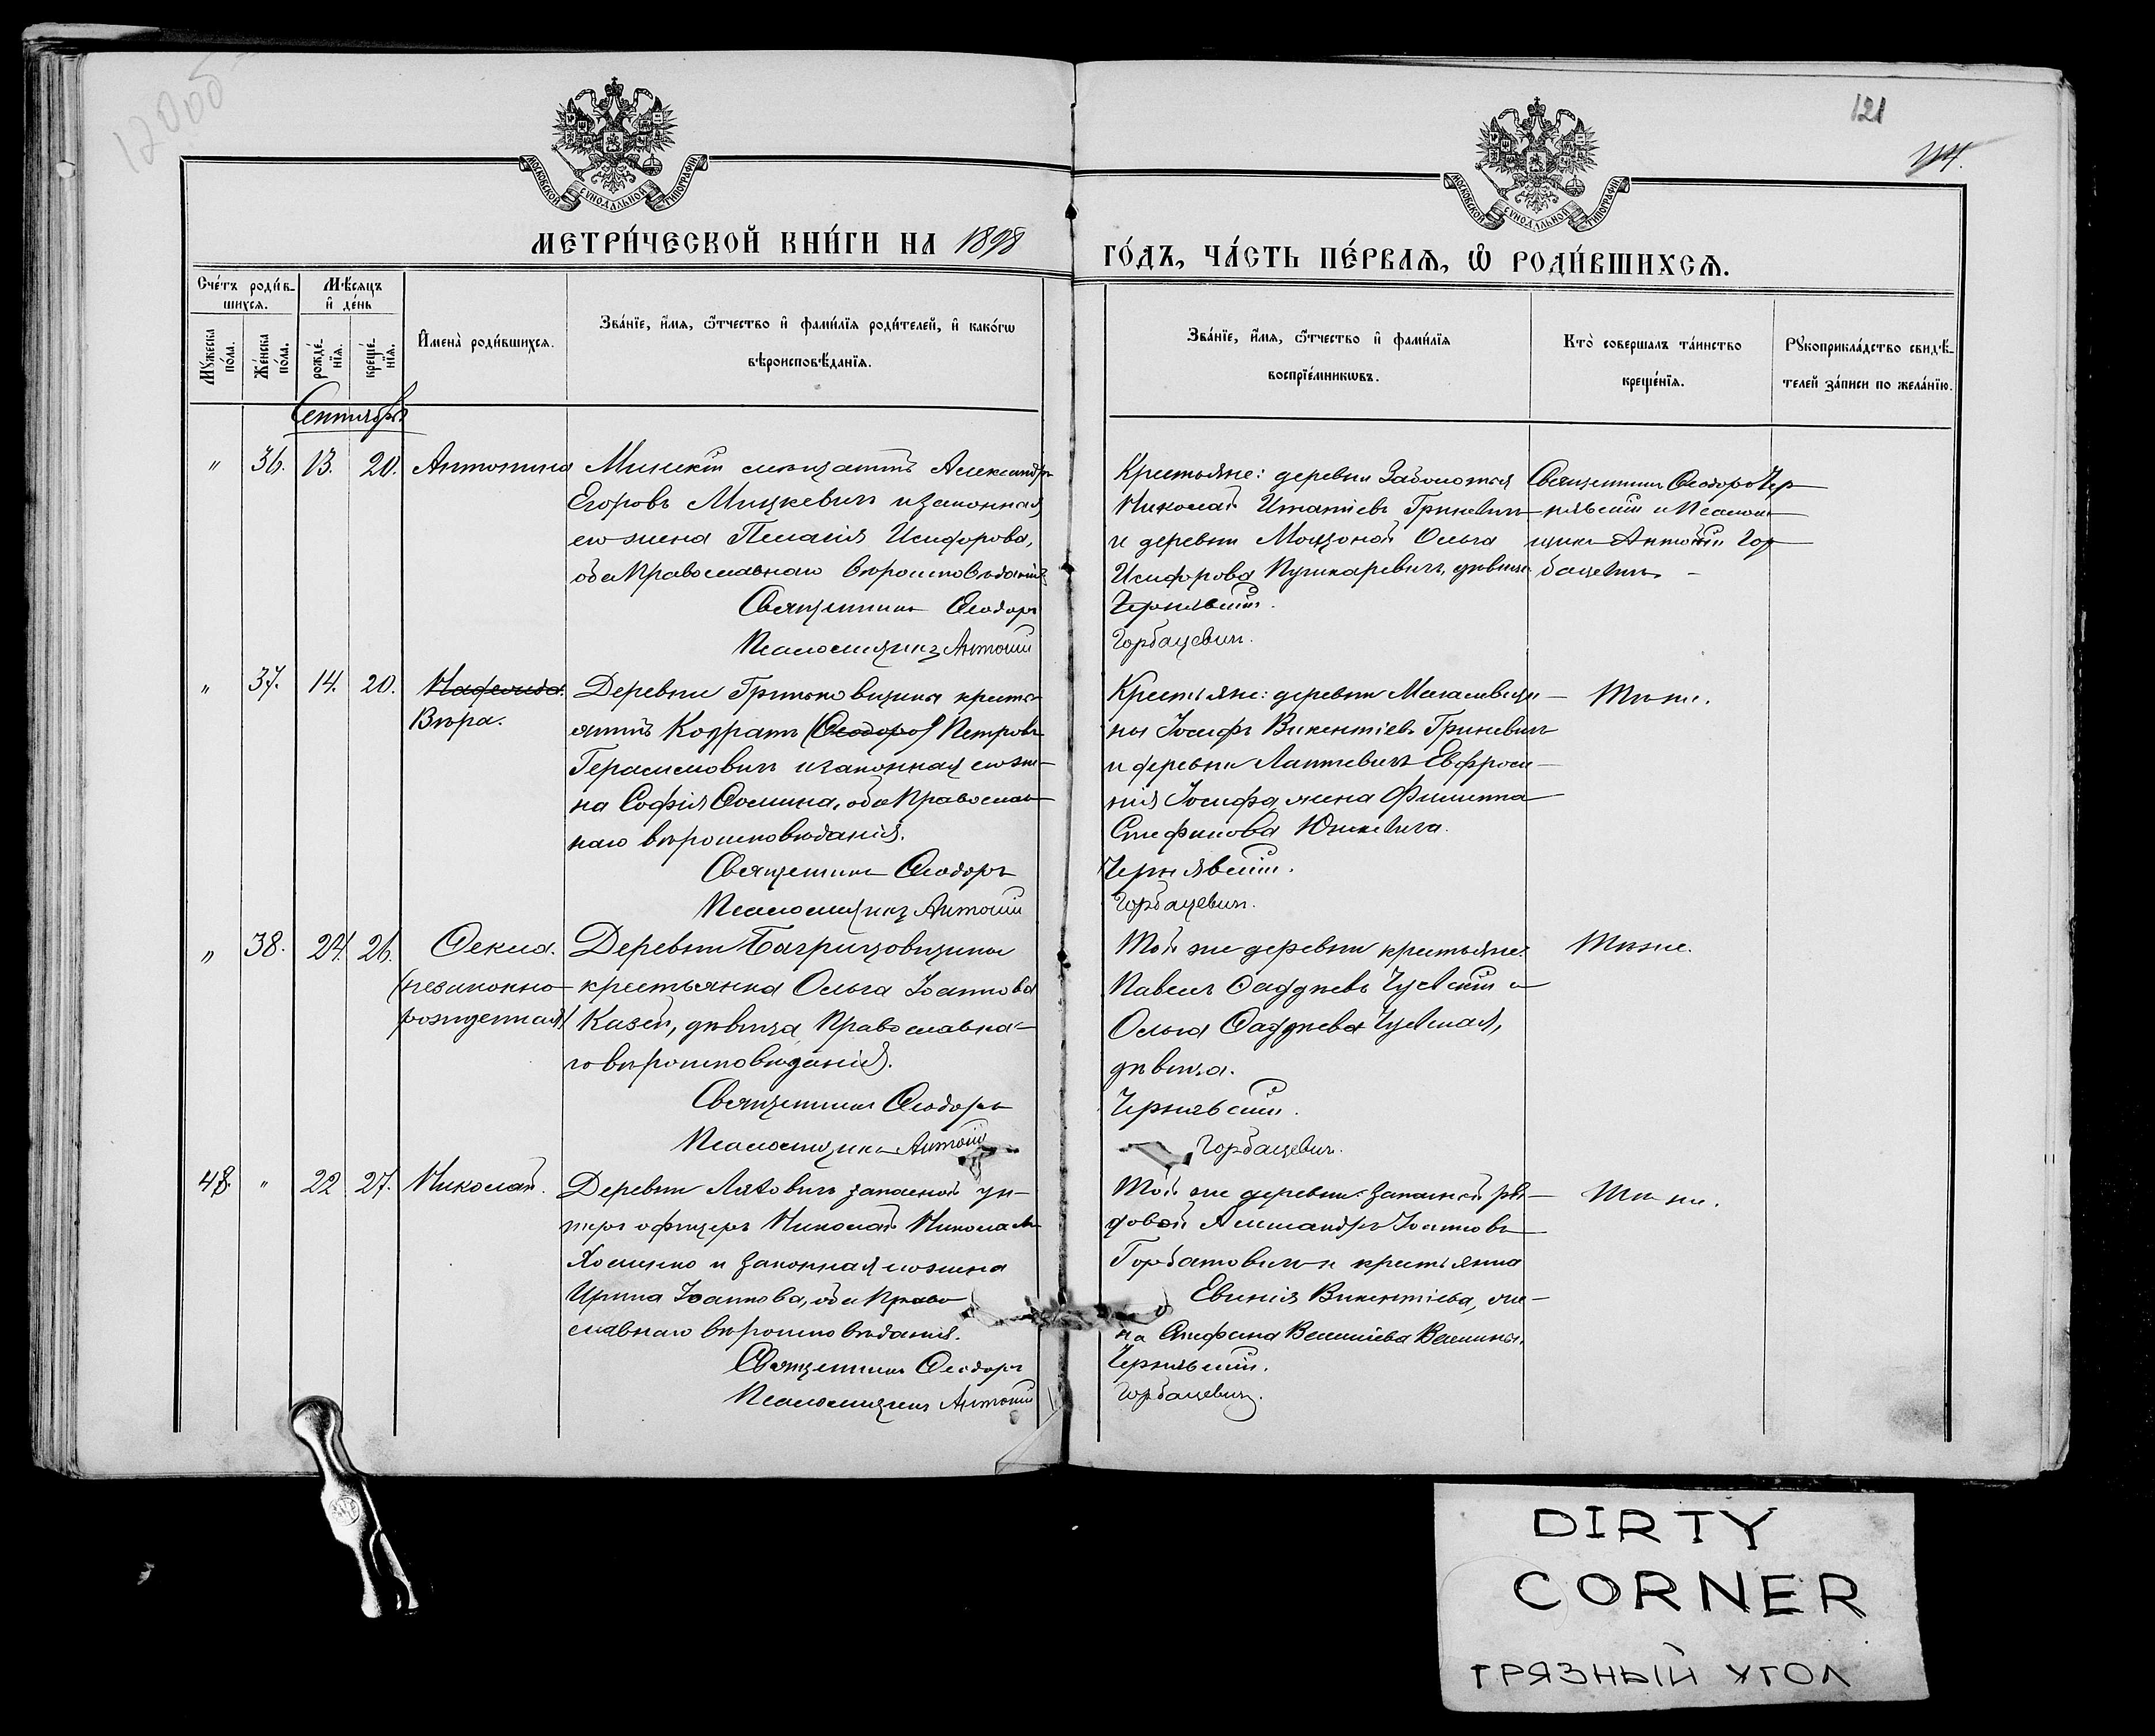 120об
121
114.
МОСКОВСКОЙ СУНОДАЛЬНОЙ ТИПОГРАФІИ
МОСКОВСКОЙ СУНОДАЛЬНОЙ ТИПОГРАФІИ
МЕТРИ́ЧЕСКОЙ КНИ́ГИ НА 1898
ГО́ДЪ, ЧА́СТЬ ПЕ́РВАѦ, Ѡ҆ РОДИ́ВШИХСѦ.
Сче́тъ роди́в-
шихсѧ.
Мѣ́сѧцъ
и҆ де́нь
Мꙋ́жеска
по́ла.
Же́нска
по́ла.
рожде́-
нїѧ.
креще́-
нїѧ.
И҆мена̀ роди́вшихсѧ.
Зва́нїе, и҆́мѧ, ѻ҆́тчество и҆ фами́лїѧ роди́телей, и҆ како́гѡ
вѣроисповѣ́данїѧ.
Зва́нїе, и҆́мѧ, ѻ҆́тчество и҆ фами́лїѧ
воспрїе́мникѡвъ.
Кто̀ соверша́лъ та́инство
креще́нїѧ.
Рꙋкоприкла́дство свидѣ́-
телей за́писи по жела́нїю.
Сентябрь
" 36. 13. 20. Антонина
Минскій мѣщанинъ Александръ
Егоровъ Мицкевичъ и законная
его жена Пелагія Исидорова,
оба Православнаго вѣроисповѣданія
Священникъ Ѳеодоръ
Псаломщикъ Антоній
Крестьяне: деревни Заболотья
Николай Игнатіевъ Гриневичъ
и деревни Ольга
Исидорова Пушкаревичъ, дѣвица
Чернявскій.
Горбацевичъ.
Священникъ Ѳеодоръ Чер-
нявскій и Псалом-
щикъ Антоній Гор-
бацевичъ.
" 37. 14. 20.
Вѣра.
Деревни Гриньковщины кресть-
янинъ Кодратъ (Ѳеодоро) Петровъ
Герасимовичъ и законная его же-
на Софія Ѳомина, оба Православ-
наго вѣроисповѣданія.
Священникъ Ѳеодоръ
Псаломщикъ Антоній
Крестьяне: деревни
ны Іосифъ Викентіевъ Гриневичъ
и деревни Лаппевичъ Евфроси-
нія Іосифа, жена Филиппа
Стефанова Юшкевича.
Чернявскій.
Горбацевичъ.
Тѣ же.
" 38. 24. 26. Ѳекла.
(незаконно-
рожденная)
Деревни Багрицовщины
крестьянка Ольга Іоаннова
Казей, дѣвица, Православна-
го вѣроисповѣданія.
Священникъ Ѳеодоръ
Псаломщикъ Антоній
Той же деревни крестьяне:
Павелъ Ѳаддеевъ Чуевскій и
Ольга Ѳаддеева Чуевская,
дѣвица.
Чернявскій.
Горбацевичъ.
Тѣ же.
48. " 22 27. Николай.
Деревни Лятовичъ запасной ун-
теръ офицеръ Николай Николаевъ
Хоменко и законная его жена
Ирина Іоаннова, оба Право-
славнаго вѣроисповѣданія.
Священникъ Ѳеодоръ
Псаломщикъ Антоній
Той же деревни: запасной ря-
довой Александръ Іоанновъ
Горбатовичъ и крестьянка
Евгенія Викентіева, же-
на Стефана
Чернявскій.
Горбацевичъ.
Тѣ же.
DIRTY
CORNER
ГРЯЗНЫЙ УГОЛ